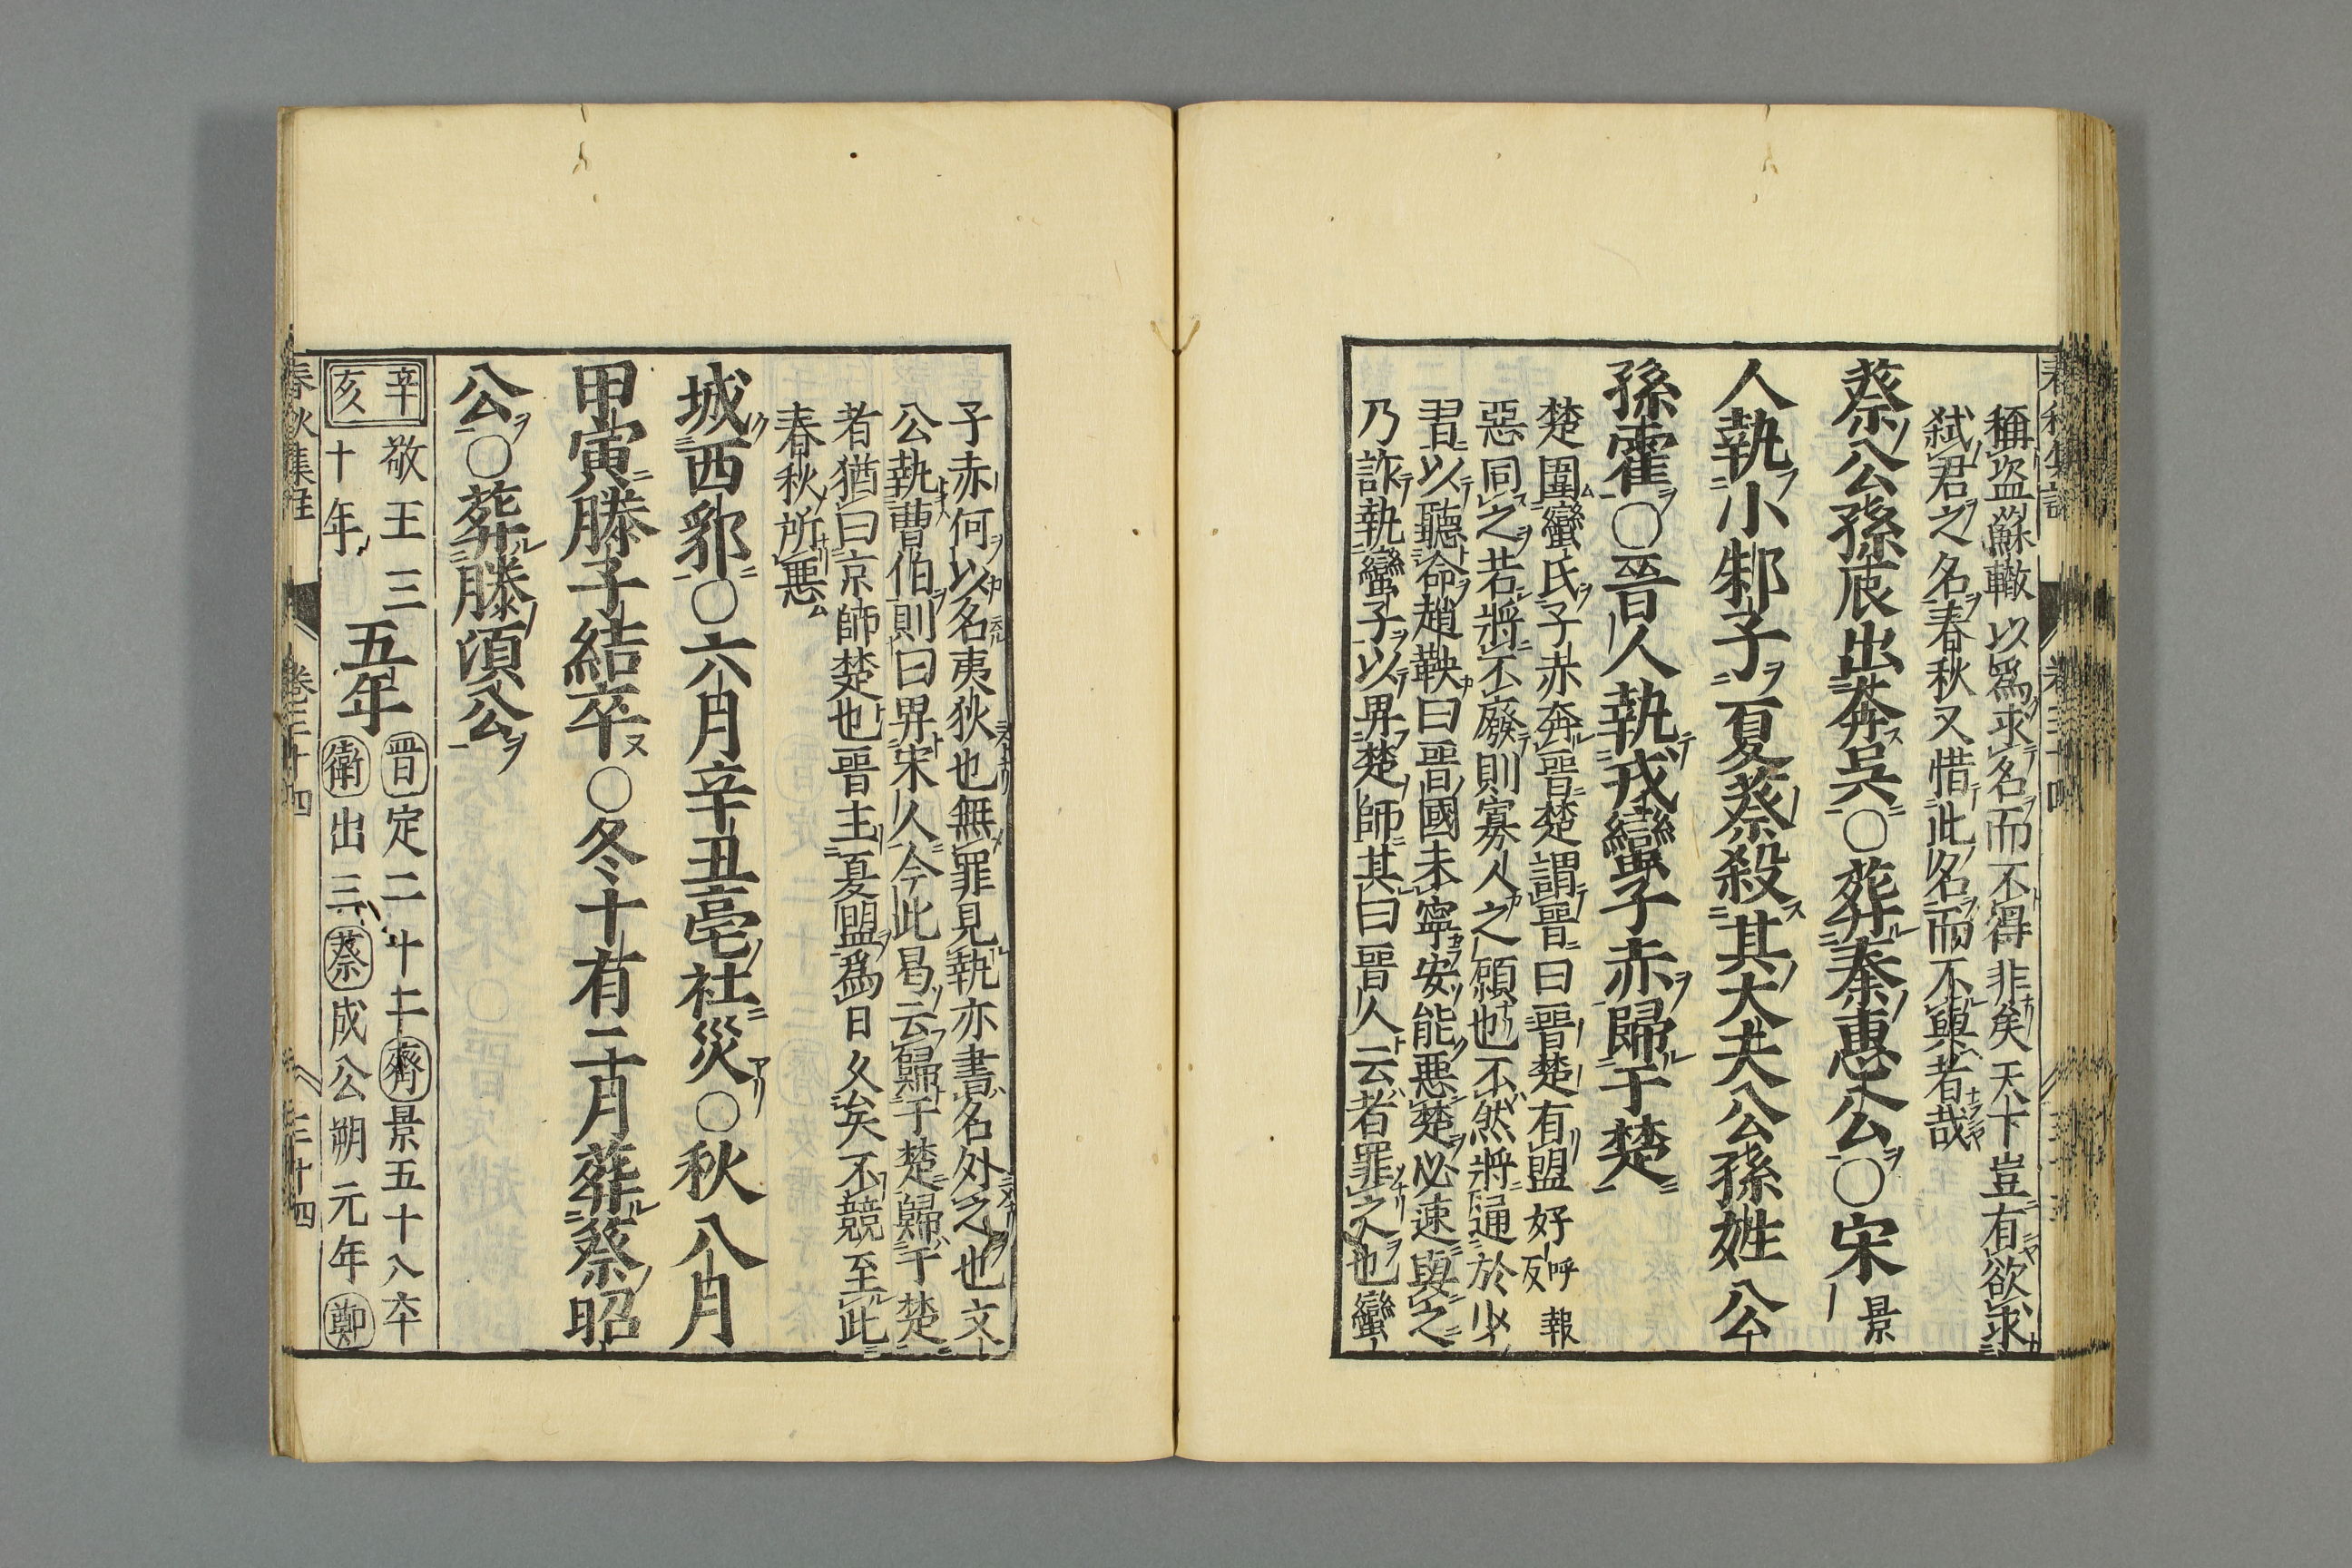 稱盗蘇轍以爲求名而不得非矣天下豈有欲求
弑君之名春秋又惜此名而不與者哉
蔡公孫辰出奔吳○葬秦惠公○宋景
人執小邾子夏蔡殺其大夫公孫姓公
孫霍○晉人執戎蠻子赤歸于楚
楚圍蠻氏子赤奔晉楚謂晉曰晉楚有盟好呼報反
惡同之若將不廢則寡人之願也不然將通於少
習以聽命趙鞅曰晉國未寧安能惡楚必速與之
乃詐執蠻子以畀楚師其曰晉人云者罪之也蠻
子赤何以名夷狄也無罪見執亦書名外之也文
公執曹伯則曰畀宋人今此曷云歸于楚歸于楚
者猶曰京師楚也晉主夏盟爲日久矣不競至此
春秋所惡
城西郛○六月辛丑亳社災○秋八月
甲寅滕子結卒○冬十有二月葬蔡昭
公○葬滕頃公
辛亥敬王三十年五年晉定二十二齊景五十八卒衛出三蔡成公朔元年鄭
春秋集註 卷三十四 三十四